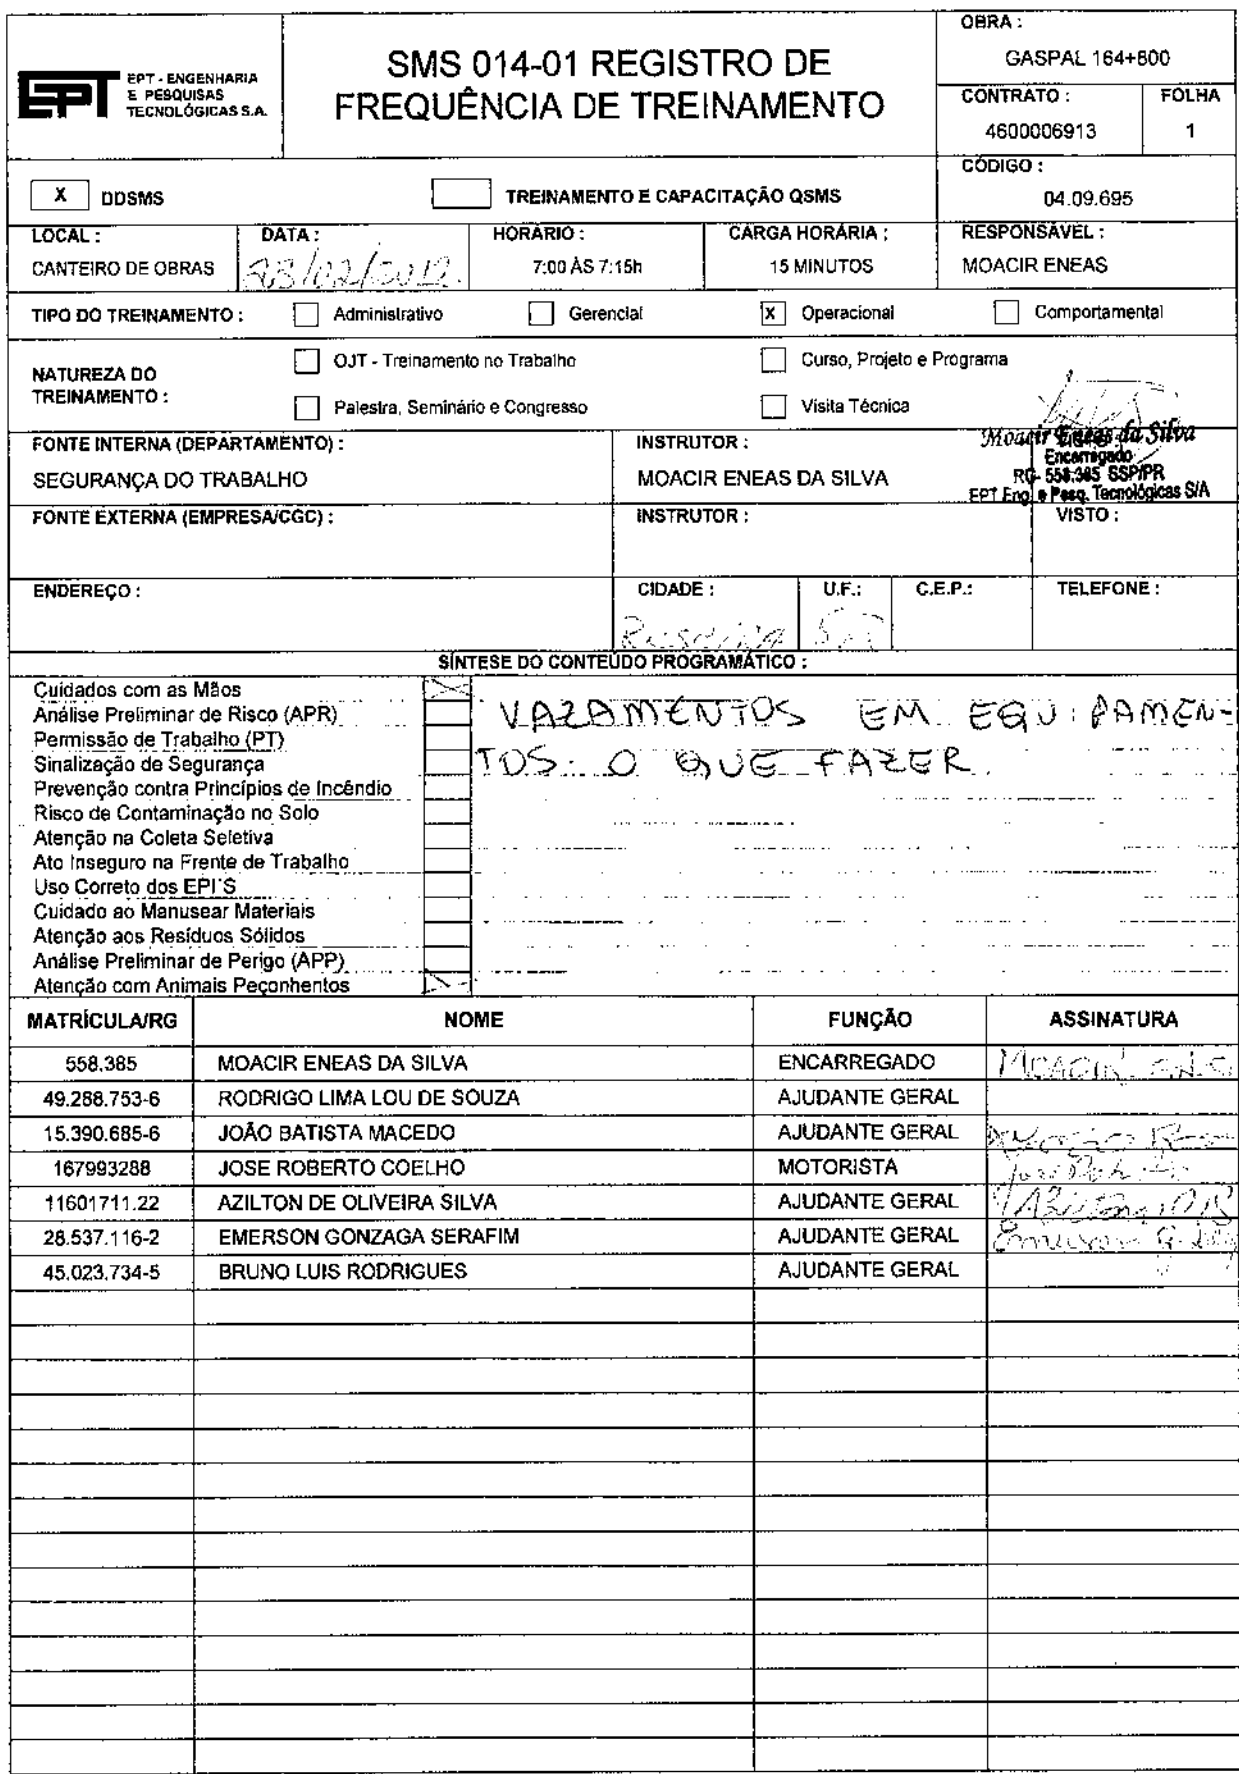 EPT - ENGENHARIA
E PESQUISAS
TECNOLÓGICAS S.A.
SMS 014-01 REGISTRO DE
FREQUÊNCIA DE TREINAMENTO
OBRA :
GASPAL 164+800
CONTRATO : FOLHA
4600006913 1
CÓDIGO :
04.09.695
X DDSMS TREINAMENTO E CAPACITAÇÃO QSMS
LOCAL : DATA : HORÁRIO : CARGA HORÁRIA : RESPONSÁVEL :
CANTEIRO DE OBRAS /02/2012 7:00 ÀS 7:15h 15 MINUTOS MOACIR ENEAS
TIPO DO TREINAMENTO : Administrativo Gerencial X Operacional Comportamental
NATUREZA DO
TREINAMENTO :
OJT - Treinamento no Trabalho Curso, Projeto e Programa
Palestra, Seminário e Congresso Visita Técnica
FONTE INTERNA (DEPARTAMENTO) : INSTRUTOR :
SEGURANÇA DO TRABALHO MOACIR ENEAS DA SILVA
Moacir Eneas da Silva
Encarregado
RG. 558.385 SSP/PR
EPT Eng. e Pesq. Tecnológicas S/A
FONTE EXTERNA (EMPRESA/CGC) : INSTRUTOR : VISTO :
ENDEREÇO : CIDADE : U.F.: C.E.P.: TELEFONE :
SÍNTESE DO CONTEÚDO PROGRAMÁTICO :
Cuidados com as Mãos X
Análise Preliminar de Risco (APR)
Permissão de Trabalho (PT)
Sinalização de Segurança
Prevenção contra Princípios de Incêndio
Risco de Contaminação no Solo
Atenção na Coleta Seletiva
Ato Inseguro na Frente de Trabalho
Uso Correto dos EPI´S
Cuidado ao Manusear Materiais
Atenção aos Resíduos Sólidos
Análise Preliminar de Perigo (APP)
Atenção com Animais Peçonhentos X
VAZAMENTOS EM EQUIPAMEN-
TOS: O QUE FAZER
MATRÍCULA/RG NOME FUNÇÃO ASSINATURA
558.385 MOACIR ENEAS DA SILVA ENCARREGADO MOACIR E.N.S
49.288.753-6 RODRIGO LIMA LOU DE SOUZA AJUDANTE GERAL
15.390.685-6 JOÃO BATISTA MACEDO AJUDANTE GERAL
167993288 JOSE ROBERTO COELHO MOTORISTA
11601711.22 AZILTON DE OLIVEIRA SILVA AJUDANTE GERAL
28.537.116-2 EMERSON GONZAGA SERAFIM AJUDANTE GERAL
45.023.734-5 BRUNO LUIS RODRIGUES AJUDANTE GERAL